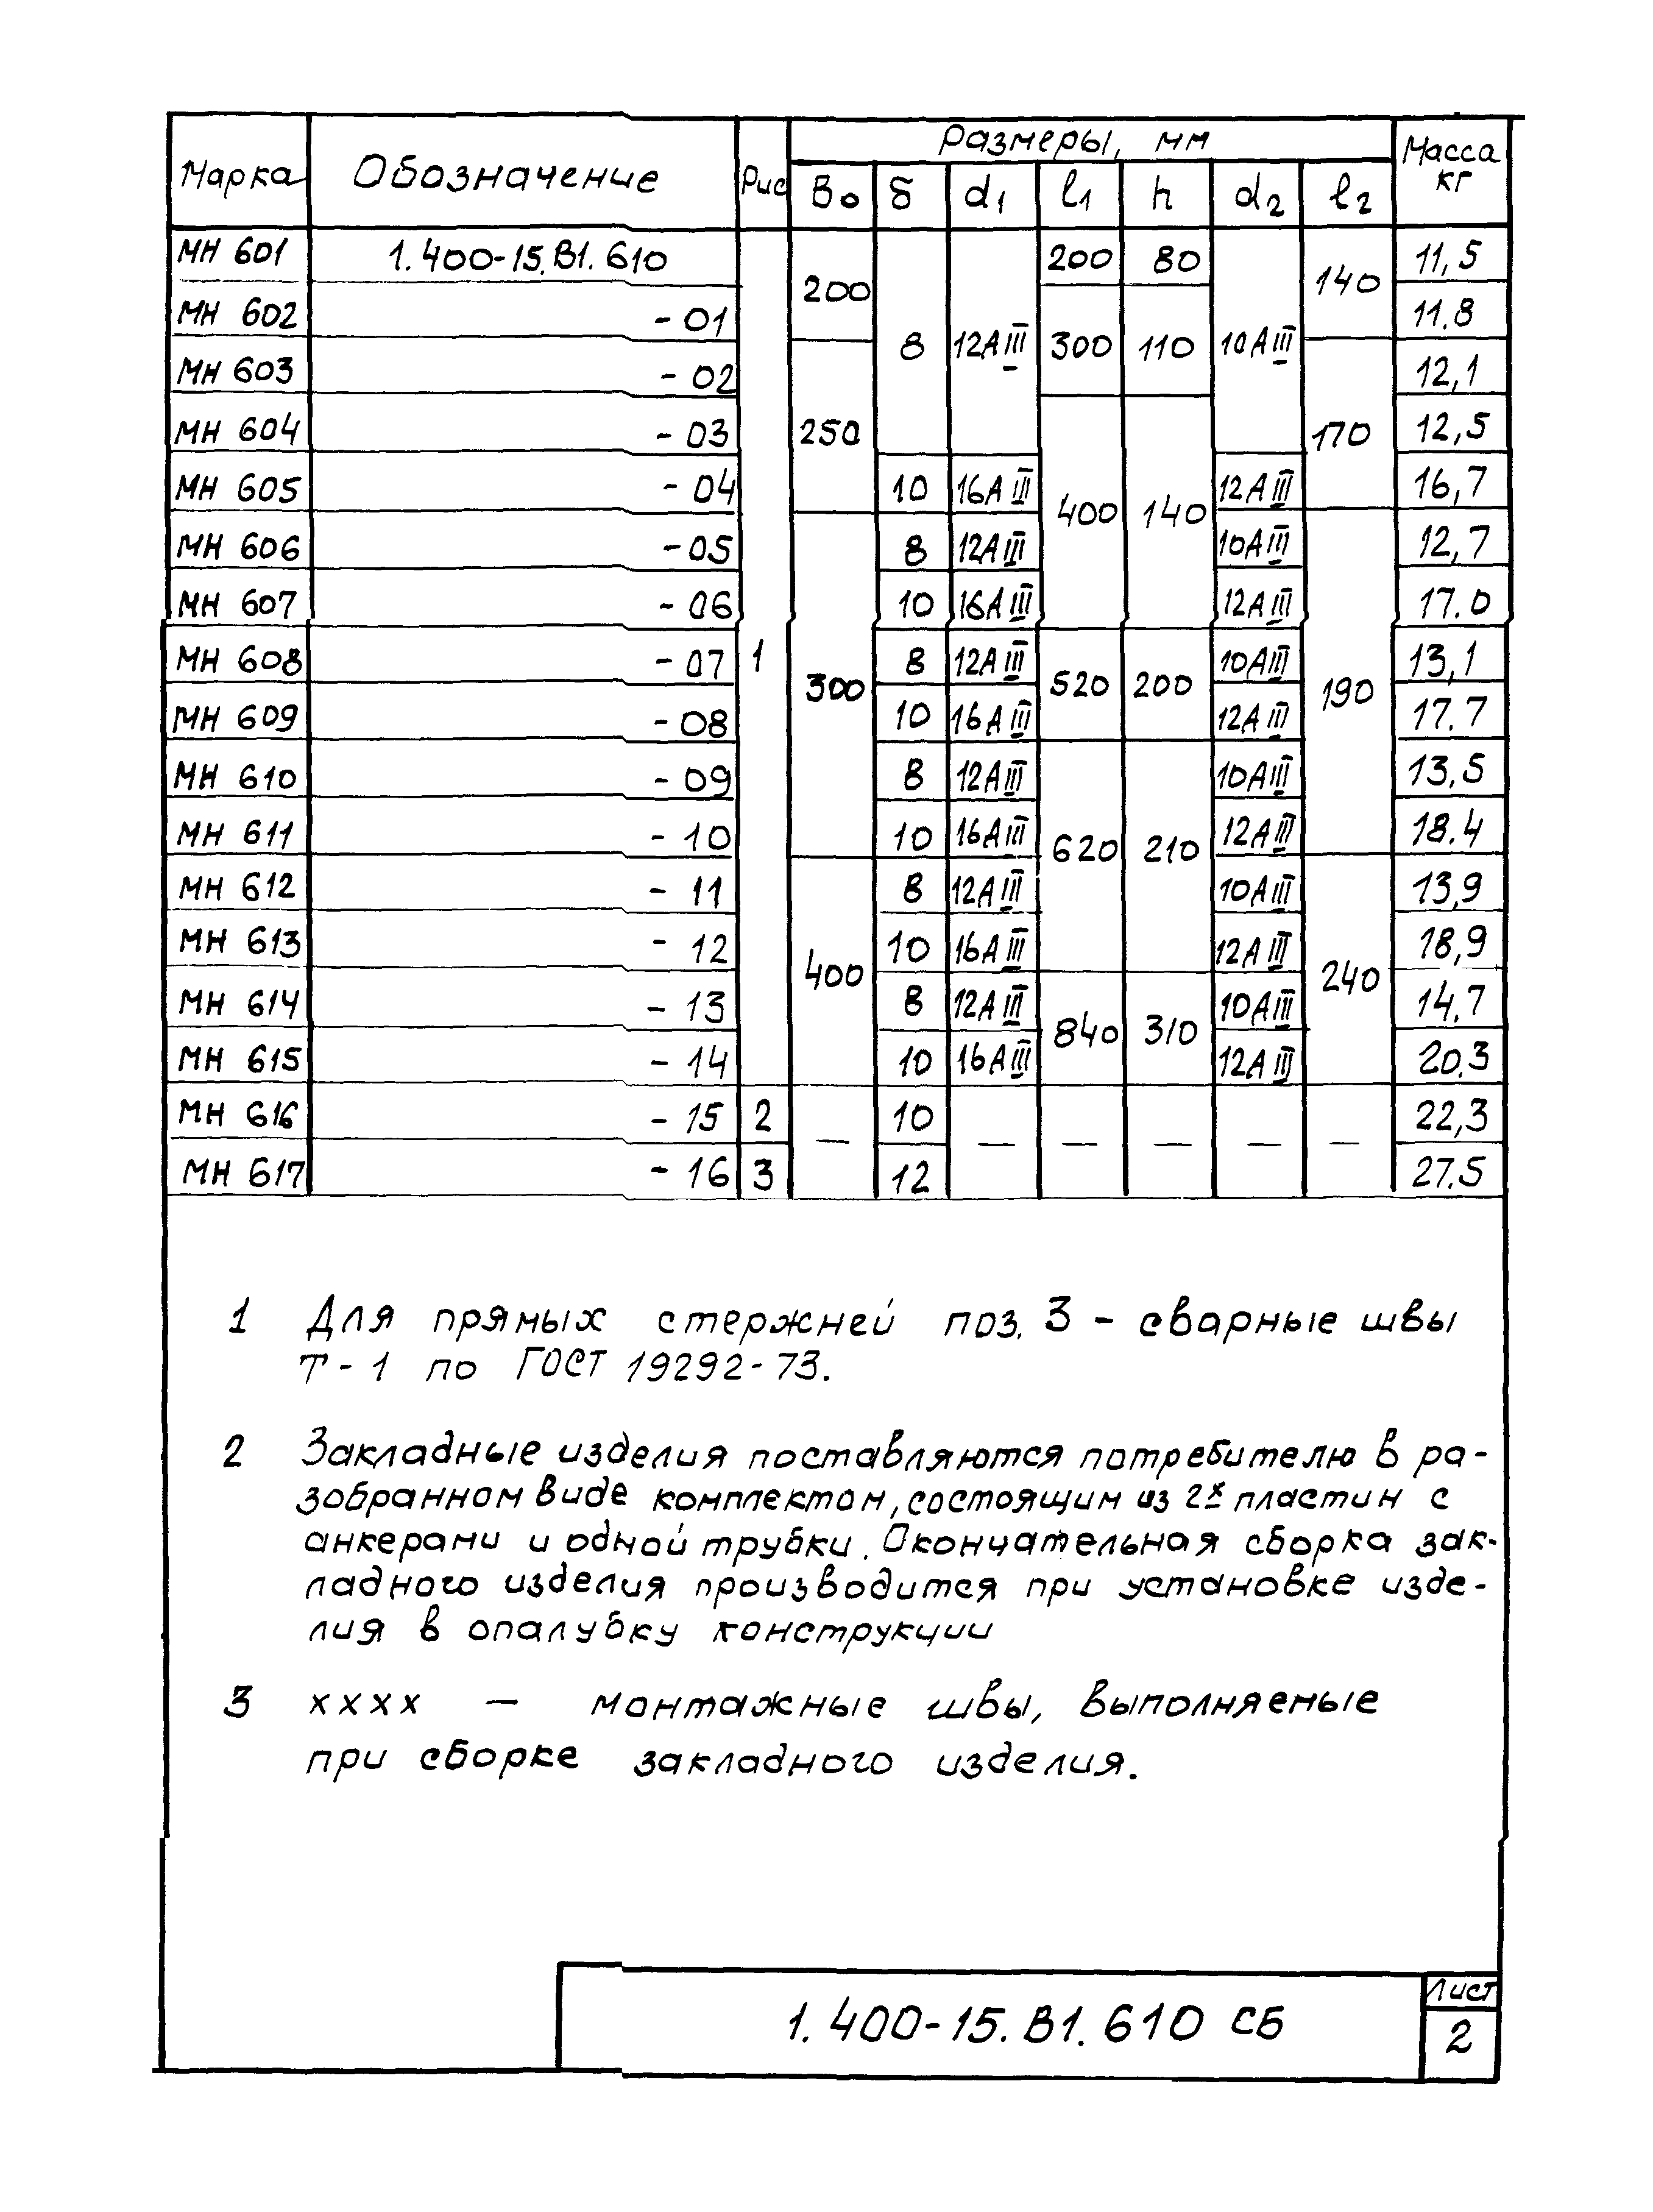 Марка Обозначение Рис Размеры, мм Масса кг
B0 δ d1 l1 h d2 l2
МН 601 1.400-15.В1.610 1 200 8 12АIII 200 80 10АIII 140 11,5
МН 602 -01 300 110 11.8
МН 603 -02 250 170 12,1
МН 604 -03 400 140 12,5
МН 605 -04 10 16АIII 12АIII 16,7
МН 606 -05 300 8 12АIII 10АIII 190 12,7
МН 607 -06 10 16АIII 12АIII 17.0
МН 608 -07 8 12АIII 520 200 10АIII 13,1
МН 609 -08 10 16АIII 12АIII 17.7
МН 610 -09 8 12АIII 620 210 10АIII 13,5
МН 611 -10 10 16АIII 12АIII 18.4
МН 612 -11 400 8 12АIII 10АIII 240 13,9
МН 613 -12 10 16АIII 12АIII 18,9
МН 614 -13 8 12АIII 840 310 10АIII 14.7
МН 615 -14 10 16АIII 12АIII 20.3
МН 616 -15 2 — 10 — — — — — 22,3
МН 617 -16 3 12 27.5
1 Для прямых стержней поз. 3 - сварные швы
Т-1 по ГОСТ 19292-73.
2 Закладные изделия поставляются потребителю в ра-
зобранном виде комплектом, состоящим из 2х пластин с
анкерами и одной трубки. Окончательная сборка зак-
ладного изделия производится при установке изде-
лия в опалубку конструкции
3 хххх — монтажные швы, выполняемые
при сборке закладного изделия.
1.400-15.В1.610 СБ
Лист
2